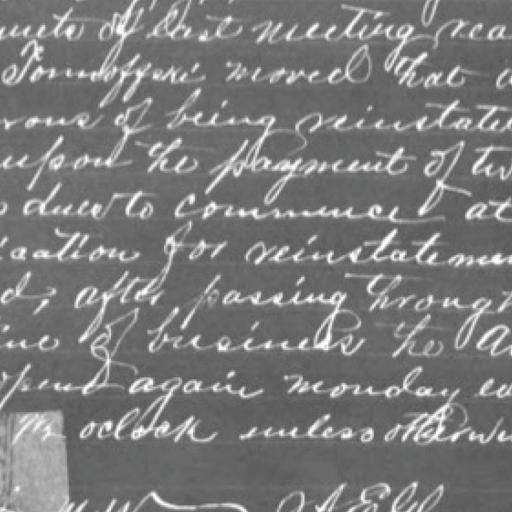 of last meeting rea
moved that
rous of being reinstate
upon the payment of tw
dues to commence at
ication for reinstatemen
d, after passing throug
ine of business the
again monday
oclock unless otherwi